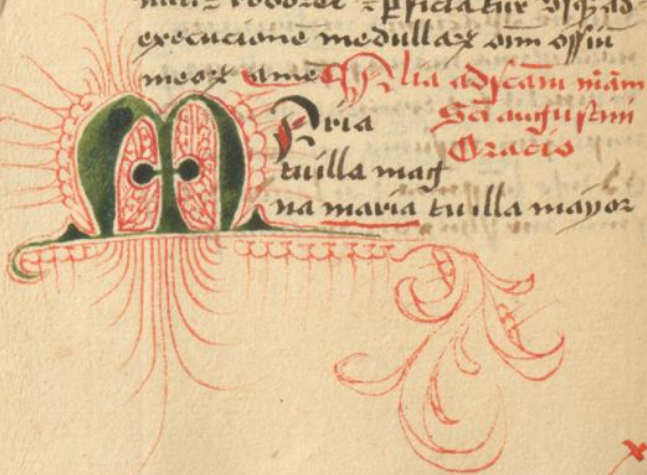 roboret ⁊ p̲ficiatur usq̢ ad
execucione medullaꝝ om̄ ossiū
meoꝝ amē Alia ad s̄cam mām
Maria s̄ci augustini
Oracio
tu illa mag
na maria tu illa mayor